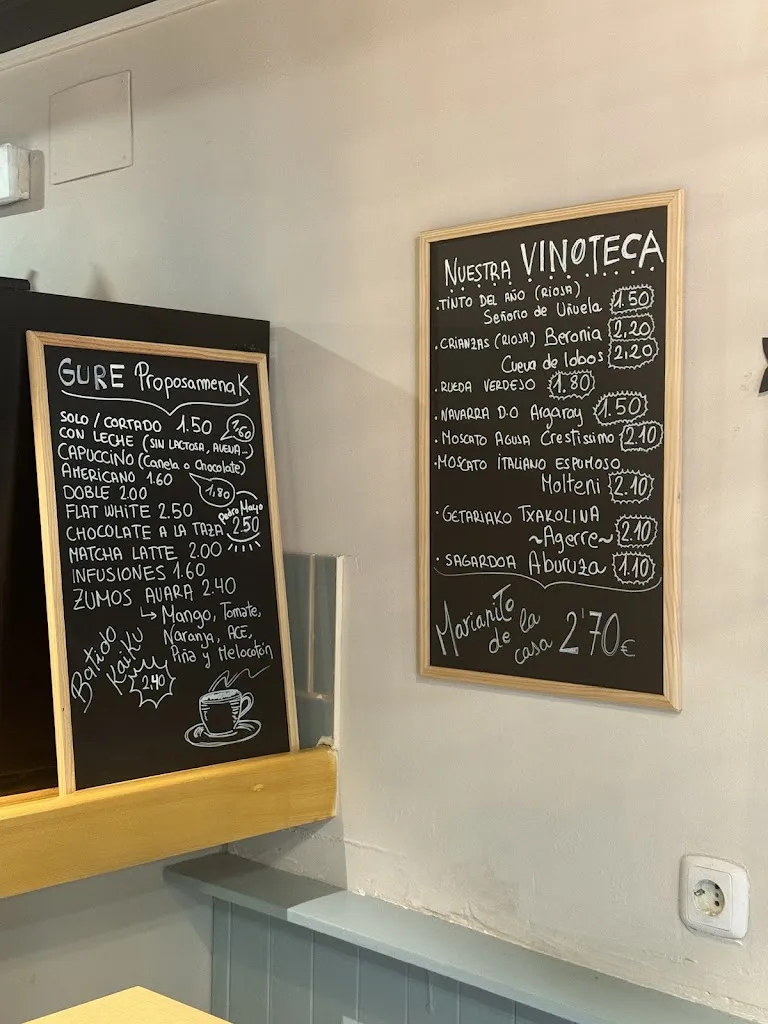 GURE ProposamenaK
SOLO / CORTADO 1.50
CON LECHE (SIN LACTOSA, AVENA...) 1,60
CAPUCCINO (Canela o Chocolate) 1,80
AMERICANO 1.60
DOBLE 2.00
FLAT WHITE 2.50
CHOCOLATE A LA TAZA Pedro Mayo 2.50
MATCHA LATTE 2.00
INFUSIONES 1.60
ZUMOS AUARA 2.40
Mango, Tomate,
Naranja, ACE,
Piña y Melocotón
Batido
Kaiku
2,40
NUESTRA VINOTECA
.TINTO DEL AÑO (RIOJA)
Señorio de Uñuela 1.50
.CRIANZAS (RIOJA) Beronia 2,20
Cueva de lobos 2,20
.RUEDA VERDEJO 1.80
.NAVARRA D.O Argaray 1.50
.MOSCATO AGUJA Crestissimo 2.10
.MOSCATO ITALIANO ESPUMOSO
Molteni 2.10
.GETARIAKO TXAKOLINA
~Agerre~ 2.10
.SAGARDOA Aburuza 1.10
Marianito
de la
casa 2'70€